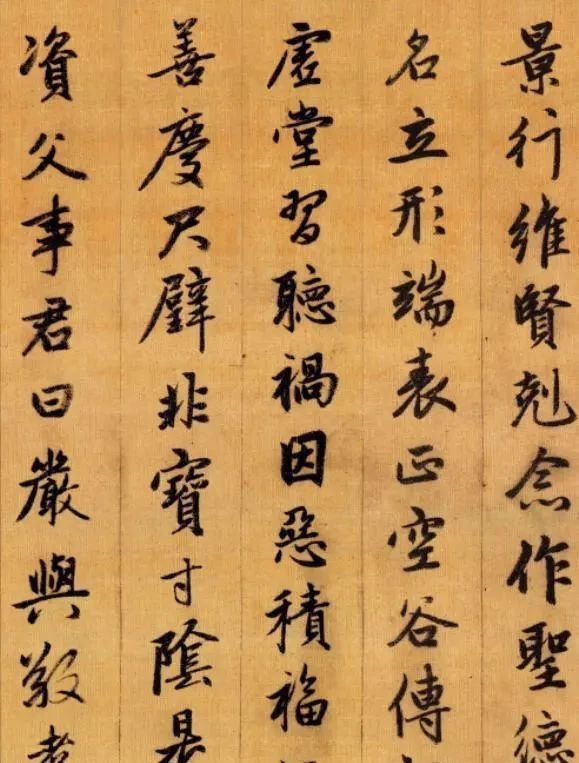 景行維賢剋念作聖德
名立形端表正空谷傳
虛堂習聽禍因惡積福
善慶尺璧非寶寸陰是
資父事君曰嚴與敬孝